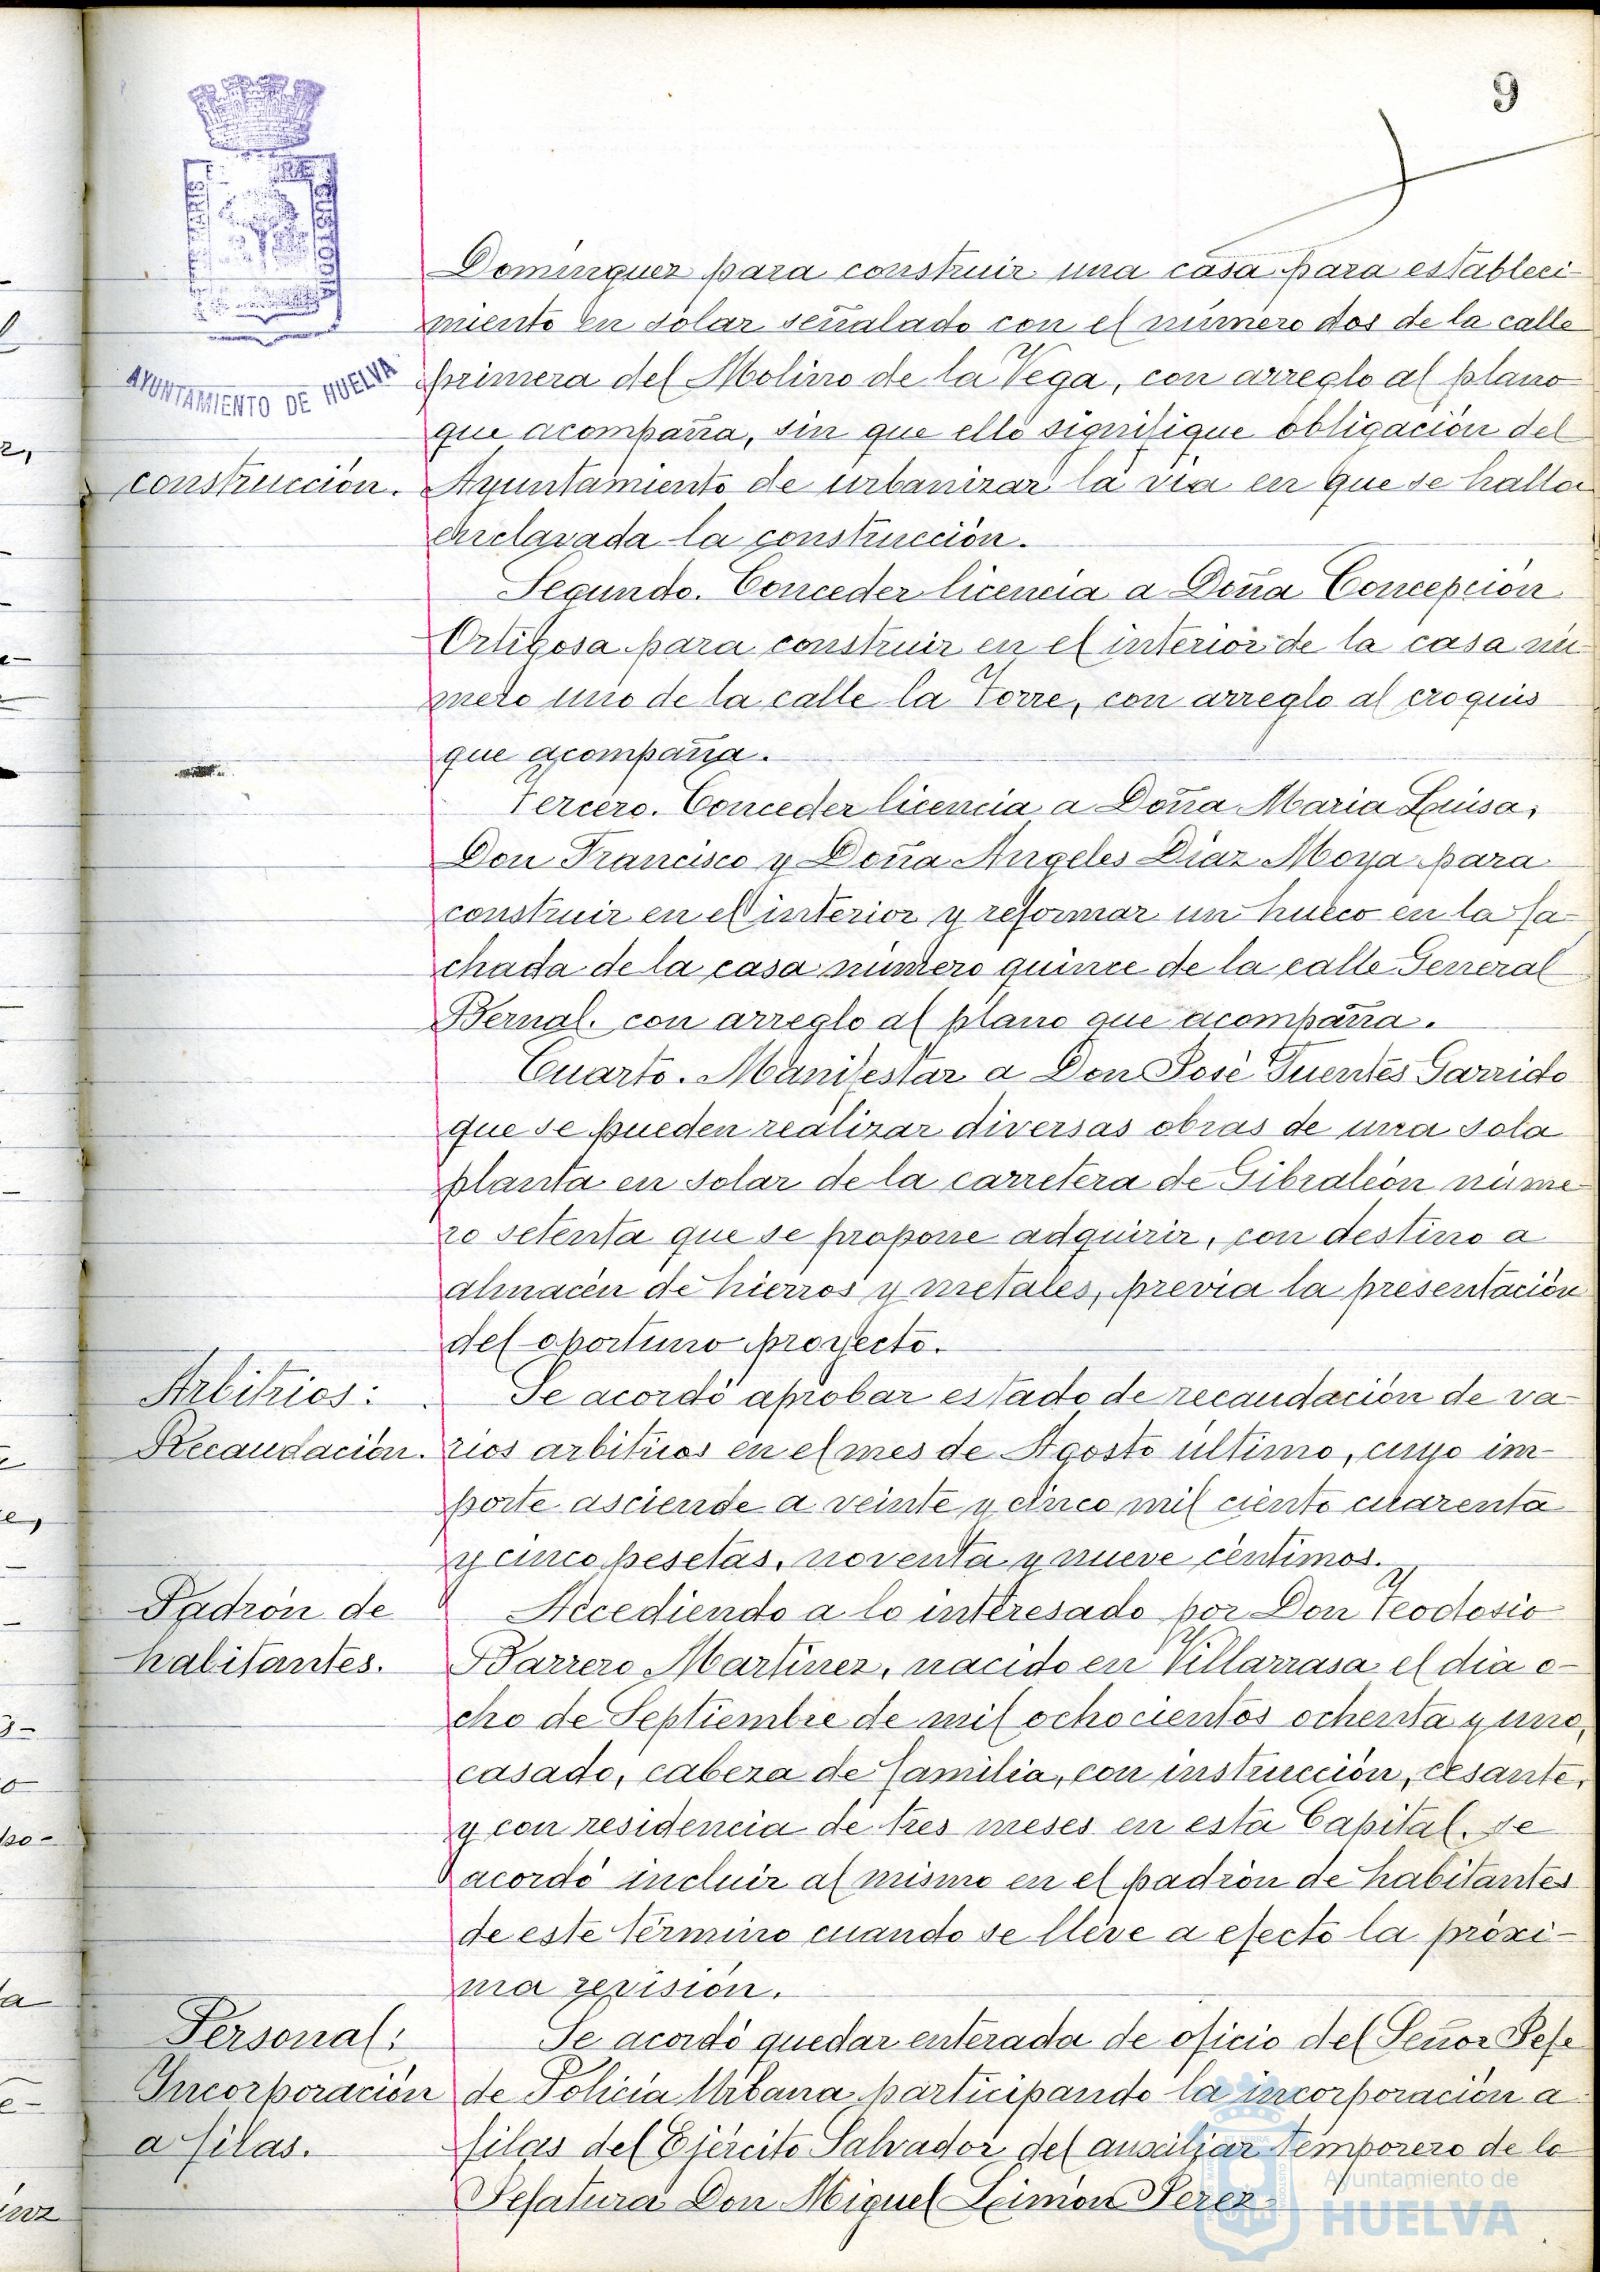 9
AYUNTAMIENTO DE HUELVA
Dominguez para construir una casa para estableci-
miento en solar señalado con el número dos de la calle
primera del Molino de la Vega, con arreglo al plano
que acompaña, sin que ello signifique obligación del
construcción.
Ayuntamiento de urbanizar la vía en que se halla
enclavada la construcción.
Segundo. Conceder licencia a Doña Concepción
Ortigosa para construir en el interior de la casa nú-
mero uno de la calle la Torre, con arreglo al croquis
que acompaña.
Tercero. Conceder licencia a Doña Maria Luisa,
Don Francisco y Doña Angeles Diaz Moya para
construir en el interior y reformar un hueco en la fa-
chada de la casa número quince de la calle General
Bernal, con arreglo al plano que acompaña.
Cuarto. Manifestar a Don José Fuentes Garrido
que se pueden realizar diversas obras de una sola
planta en solar de la carretera de Gibraleón núme-
ro setenta que se propone adquirir, con destino a
almacén de hierros y metales, previa la presentación
del oportuno proyecto.
Arbitrios:
Recaudación.
Se acordó aprobar estado de recaudación de va-
rios arbitrios en el mes de Agosto último, cuyo im-
porte asciende a veinte y cinco mil ciento cuarenta
y cinco pesetas, noventa y nueve céntimos.
Padrón de
habitantes.
Accediendo a lo interesado por Don Teodosio
Barrero Martinez, nacido en Villarrasa el día o-
cho de Septiembre de mil ochocientos ochenta y uno,
casado, cabeza de familia, con instrucción, cesante,
y con residencia de tres meses en esta Capital, se
acordó incluir al mismo en el padrón de habitantes
de este término cuando se lleve a efecto la próxi-
ma revisión.
Personal:
Incorporación
a filas.
Se acordó quedar enterada de oficio del Señor Jefe
de Policía Urbana participando la incorporación a
filas del Ejército Salvador del auxiliar temporero de la
Jefatura Don Miguel Limón Perez.
Ayuntamiento de
HUELVA